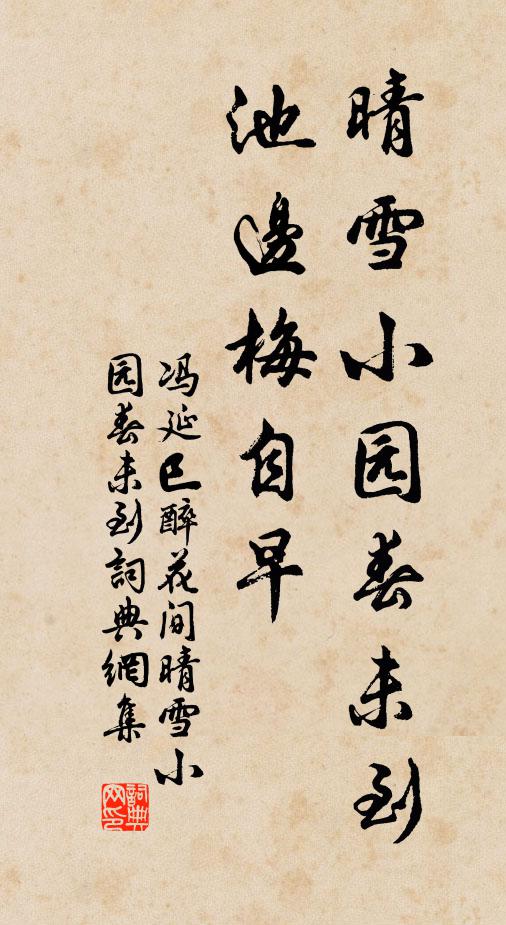 晴雪小园春未到
池邊梅自早
冯延巳醉花间晴雪小
园春未到詞典網集
詞典
网印